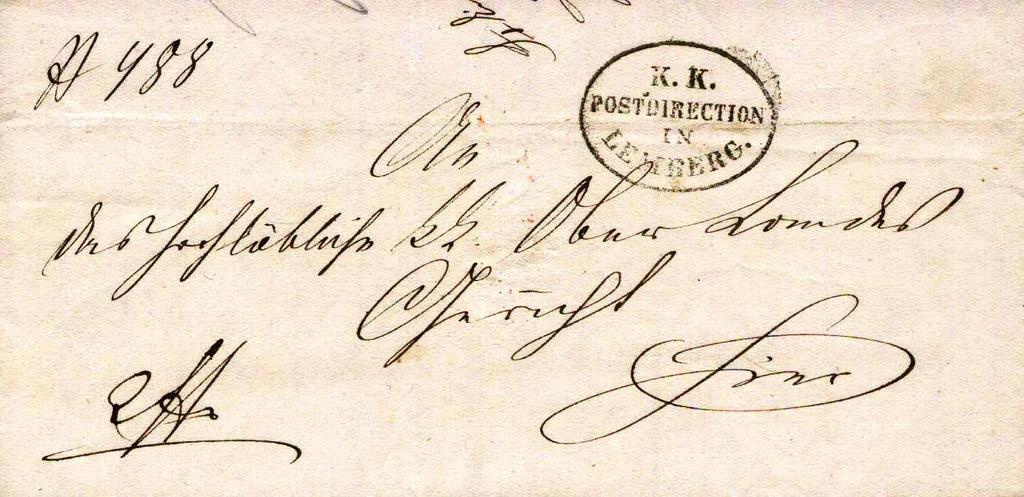 N 488
K. K.
POSTDIRECTION
IN
LEMBERG.
An
das hochlöbliche kk. Ober Landes
Gericht
Hier